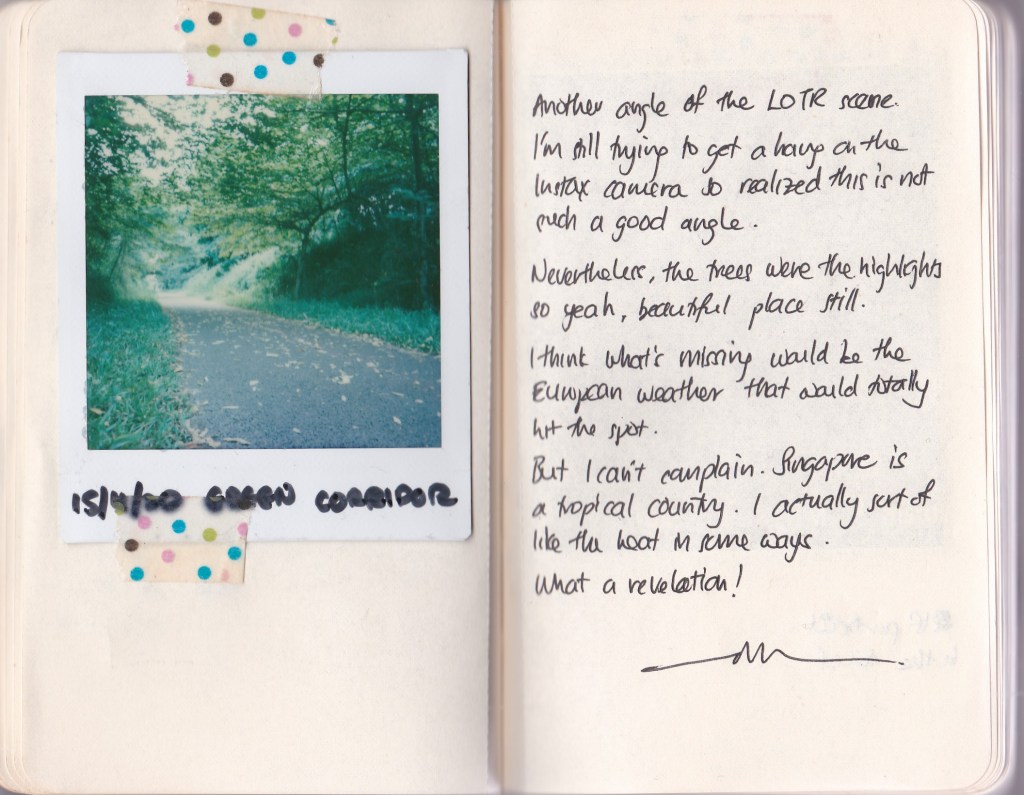 15/4/20 GREEN CORRIDOR
Another angle of the LOTR scene.
I'm still trying to get a hang on the
Instax camera so realized this is not
such a good angle.
Nevertheless, the trees were the highlights
so yeah, beautiful place still.
I think what's missing would be the
European weather that would totally
hit the spot.
But I can't complain. Singapore is
a tropical country. I actually sort of
like the heat in some ways.
What a revelation!